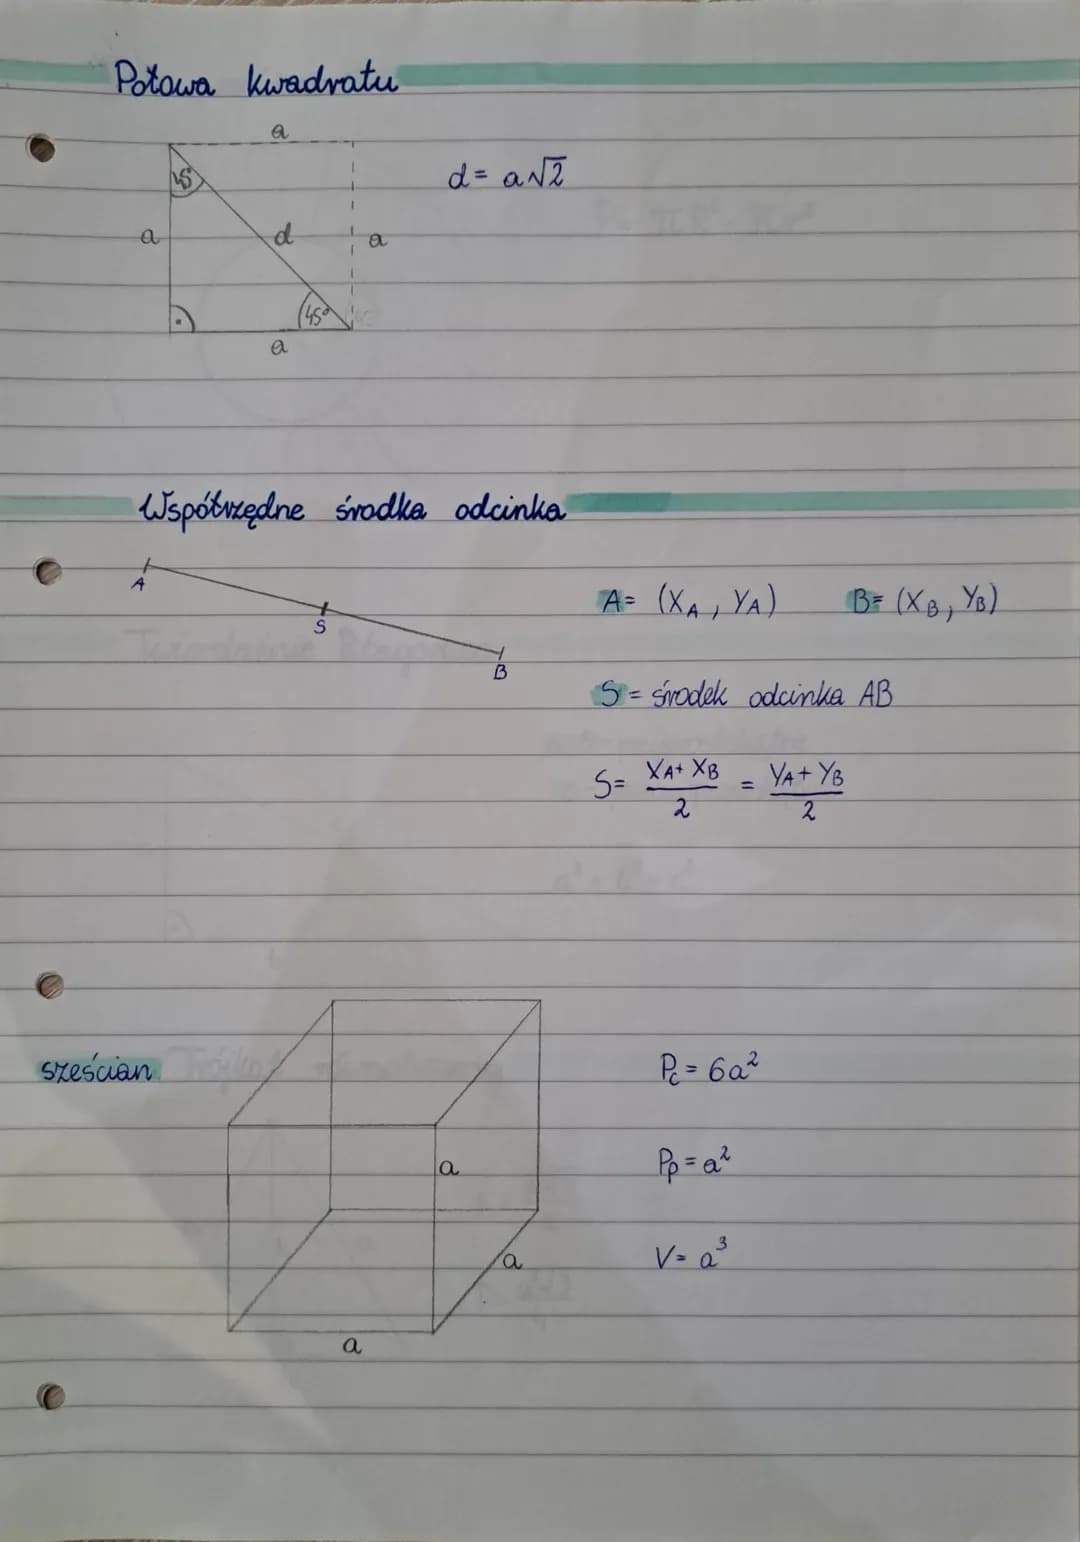 Połowa kwadratu
a
45°
d = a√2
a
d
a
45°
a
Współrzędne środka odcinka
A
S
B
A = (XA, YA) B = (XB, YB)
S = środek odcinka AB
S = XA + XB / 2 = YA + YB / 2
sześcian
Pc = 6a²
a
Pp = a²
a
V = a³
a